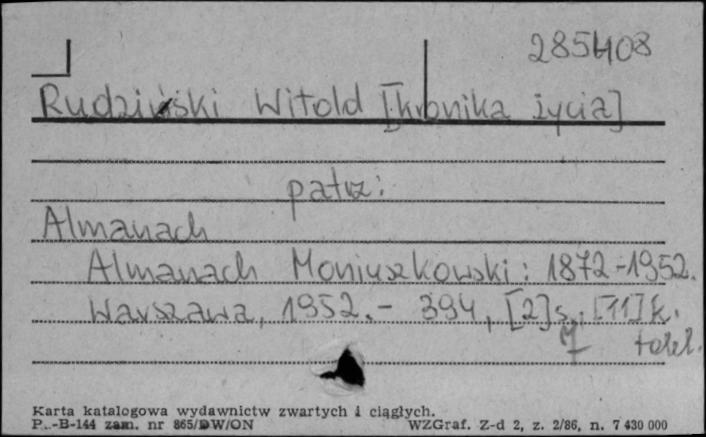 285408
Rudziński Witold [kronika życia]
patrz:
Almanach
Almanach Moniuszkowski: 1872-1952.
Warszawa, 1952.- 394, [2]s., [11] k.
tabl.
Karta katalogowa wydawnictw zwartych i ciągłych.
P..-B-144 zam. nr 865/DW/ON WZGraf. Z-d 2, z. 2/86, n. 7 430 000